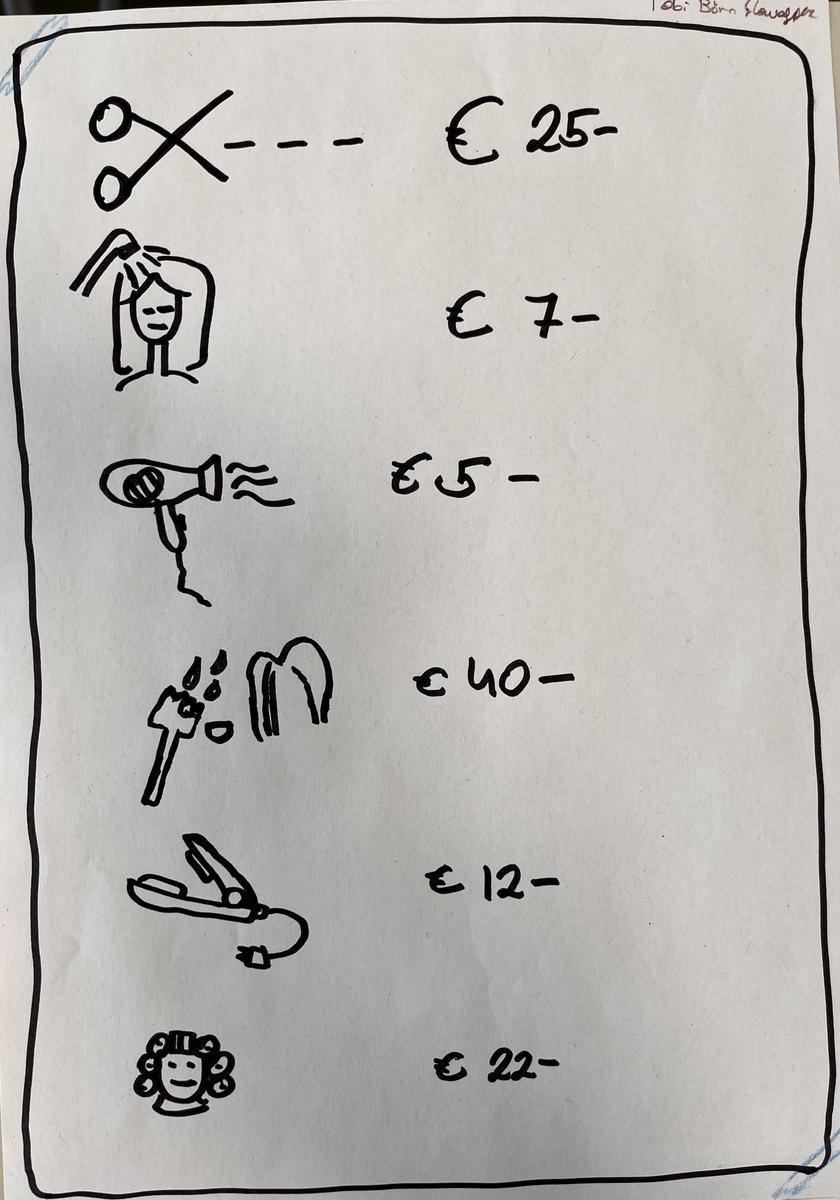 Tobi Börn
€ 25-
€ 7-
€ 5 -
€ 40-
€ 12-
€ 22-